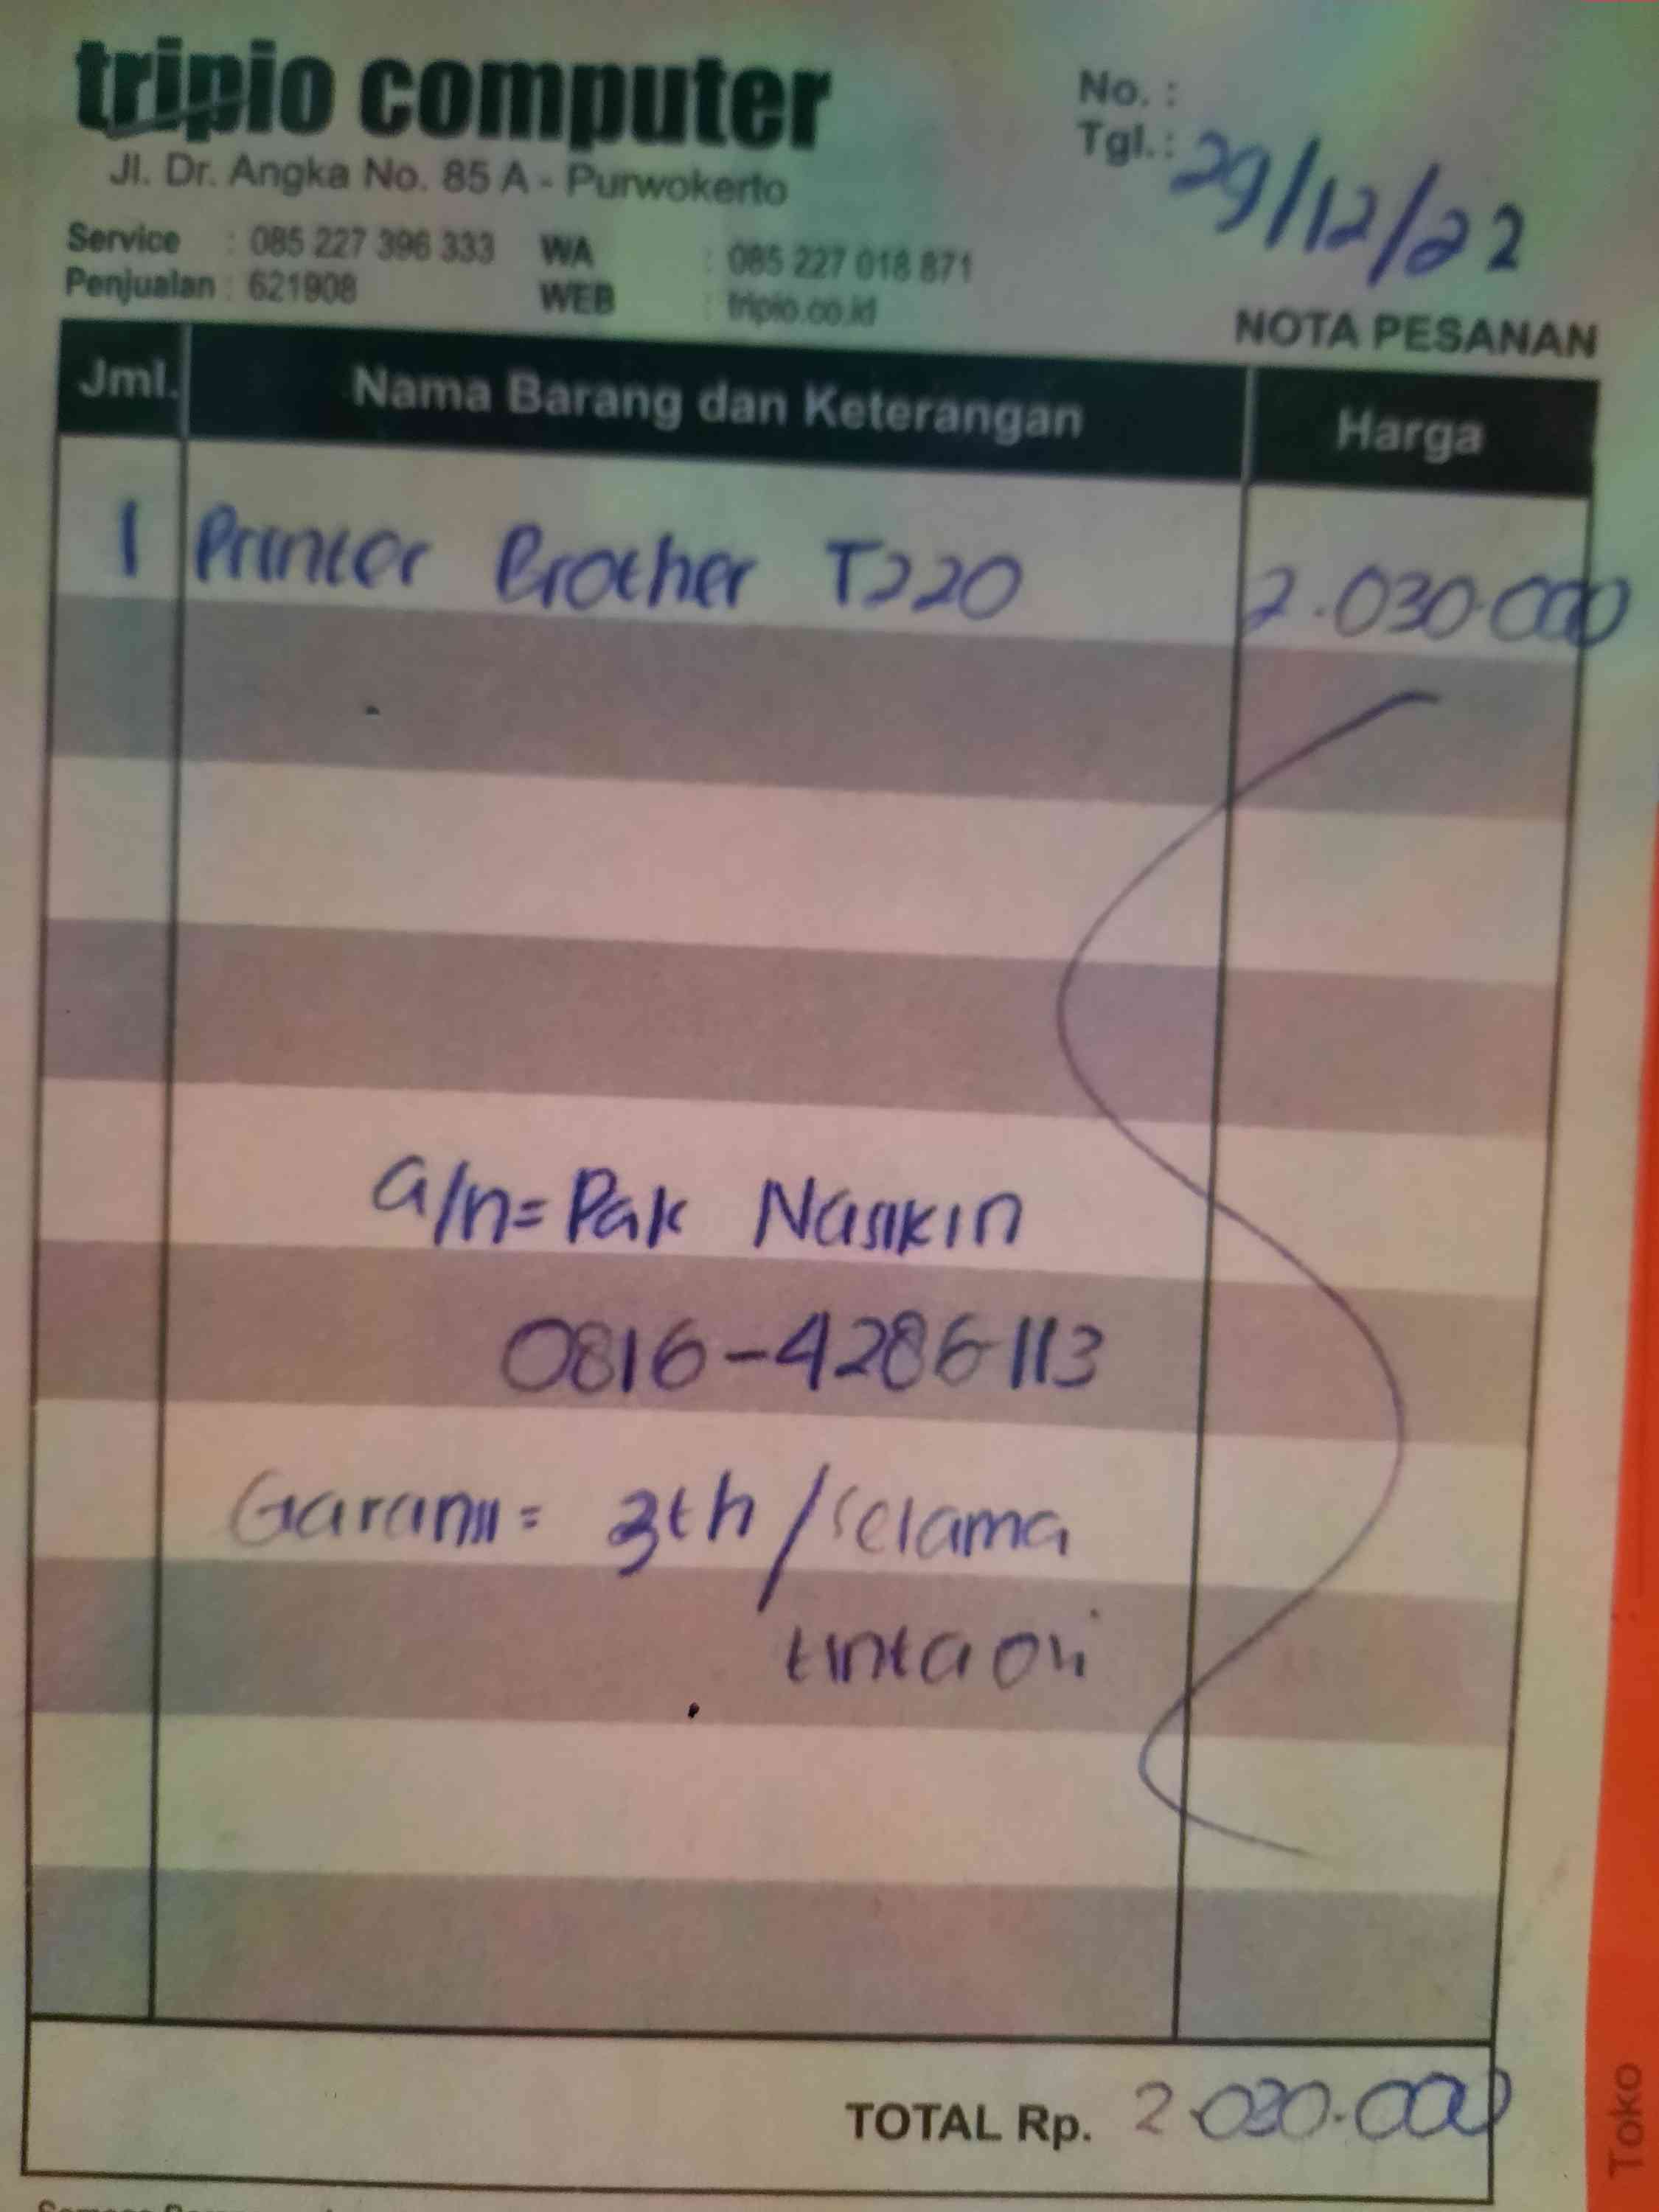 tripio computer
Jl. Dr. Angka No. 85 A - Purwokerto
No. :
Tgl. : 29/12/22
Service : 085 227 396 333 WA : 085 227 018 871
Penjualan : 621908 WEB : tripio.co.id
NOTA PESANAN
Jml. Nama Barang dan Keterangan Harga
1 Printer Brother T220 2.030.000
a/n= Pak Nasikin
0816-4286113
Garansi= 3th/selama
tinta ori
TOTAL Rp. 2.030.000
Toko